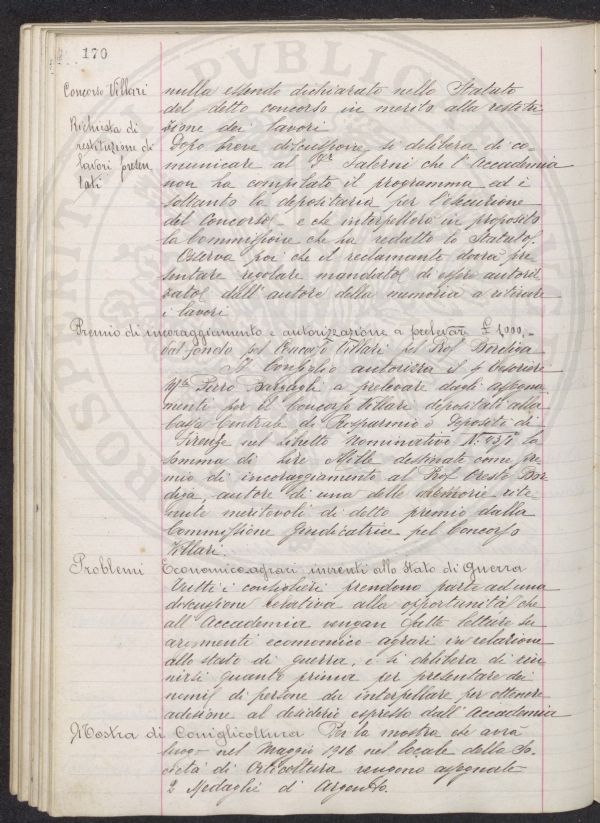 170
Concorso Villari
Richiesta di
restituzione di
lavori presen
tati
nulla essendo dichiarato nello Statuto
del detto concorso in merito alla restitu
zione dei lavori
Dopo breve discussione si delibera di co-
municare al Sigr Salerni che l'Accademia
non ha compilato il programma ed è
soltanto la depositaria per l'esecuzione
del Concorso, e che interpellerà in proposito
la Commissione che ha redatto lo Statuto.
Osserva poi che il reclamante dovrà pre
sentare regolare mandato di essere autoriz
zato dall'autore della memoria a ritirare
i lavori
Premio di incoraggiamento e autorizzazione a prelevar £ 1,000,-
dal fondo pel Concorso Villari pel Prof Bordiga
Il Consiglio autorizza il Tesoriere
Piero Bargagli a prelevare dagli assegna
menti per il Concorso Villari depositati alla
Cassa Centrale di Risparmio e Depositi di
Firenze nel Libretto Nominativo N. la
somma di Lire Mille destinato come pre
mio di incoraggiamento al Prof Oreste Bor
diga, autore di una delle memorie rite-
nute meritevoli di detto premio dalla
Commissione Giudicatrice pel Concorso
Villari.
Problemi Economico agrari inerenti allo Stato di Guerra
Tutti i consiglieri prendono parte ad una
discussione relativa alla opportunità che
all'Accademia vengan fatte letture su
argomenti economico-agrari in relazione
allo stato di guerra, e si delibera di riu
nirsi quanto prima per presentare dei
nomi di persone da interpellare per ottenere
adesione al desiderio espresso dall'Accademia
Mostra di Coniglicoltura Per la mostra che avrà
luogo nel Maggio 1916 nel locale della So
cietà di Orticoltura vengono assegnate
2 Medaglie d'Argento.